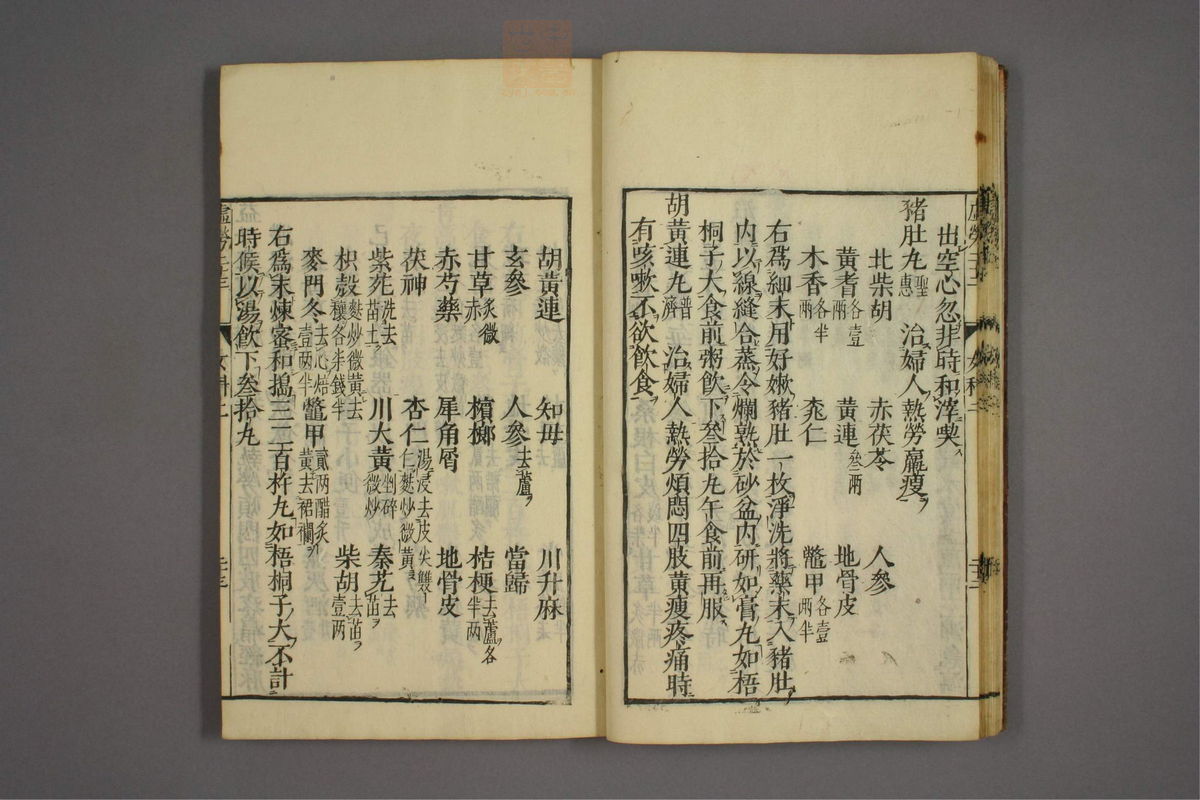 出空心忽非時和滓喫
豬肚丸聖惠 治婦人熱勞羸瘦
北柴胡 赤茯苓 人參
黃耆各壹兩 黃連叁兩 地骨皮
木香各半兩 桃仁 鼈甲各壹兩半
右爲細末用好嫰豬肚一枚淨洗將藥末入豬肚
內以線縫合蒸令爛熟於砂盆內研如膏丸如梧
桐子大食前粥飲下叁拾丸午食前再服
胡黃連丸普濟 治婦人熱勞煩悶四肢黃瘦疼痛時
有咳嗽不欲飲食
胡黃連 知母 川升麻
玄參 人參去蘆 當歸
甘草炙微赤 檳榔 桔梗去蘆各半兩
赤芍藥 犀角屑 地骨皮
茯神 杏仁湯浸去皮尖雙仁麩炒微黃
紫菀洗去苗土 川大黃剉碎微炒 秦艽去苗
枳殼麩炒微黃去穰各半錢半 柴胡去苗壹兩
麥門冬去心焙壹兩半 鼈甲貳兩醋炙黃去裙襴
右爲末煉蜜和搗三二百杵丸如梧桐子大不計
時候以湯飲下叁拾丸